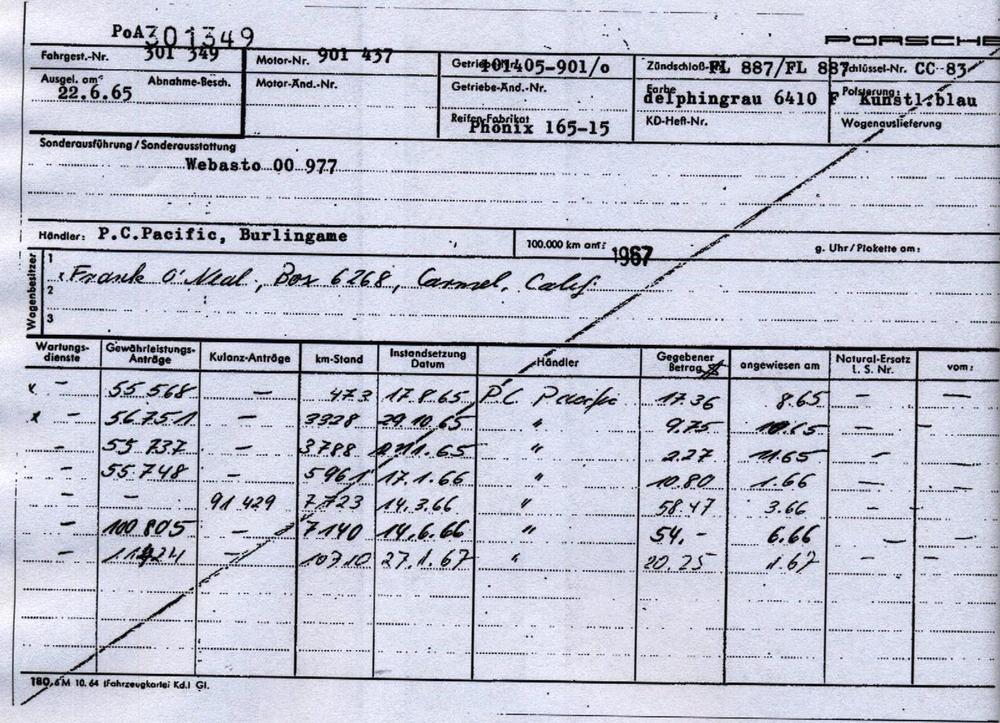 PoA 301349
PORSCHE
Fahrgest.-Nr. 301 349 Motor-Nr. 901 437 101405-901/o Zündschloß-Nr. FL 887/FL 887 Schlüssel-Nr. CC 83
Ausgel. am: Abnahme-Besch. Motor-Änd.-Nr. Getriebe-Änd.-Nr. Farbe Polsterung:
22.6.65 delphingrau 6410 F Kunstl.blau
Reifen-Fabrikat KD-Heft-Nr. Wagenauslieferung
Phönix 165-15
Sonderausführung/Sonderausstattung
Webasto 00 977
Händler: P.C.Pacific, Burlingame 100.000 km am: 1967 g. Uhr/Plakette am:
Wagenbesitzer
1 Frank O'Neal, Box 6268, Carmel, Calif.
2
3
Wartungs-dienste Gewährleistungs-Anträge Kulanz-Anträge km-Stand Instandsetzung Datum Händler Gegebener Betrag $ angewiesen am Natural-Ersatz L. S. Nr. vom:
x – 55 568 – 473 17.8.65 P.C. Pacific 17.36 8.65 – –
x – 56 751 – 3328 29.10.65 " 9.75 10.65 – –
– 55 737 – 3788 11.65 " 2.27 11.65 – –
– 55 748 – 5961 17.1.66 " 10.80 1.66 – –
– – 91 429 7723 14.3.66 " 58.47 3.66 – –
– 100 805 – 7140 14.6.66 " 54.– 6.66 – –
– – 10710 27.1.67 " 20.25 1.67 – –
180.6M 10. 64 (Fahrzeugkartei Kd.) Gl.